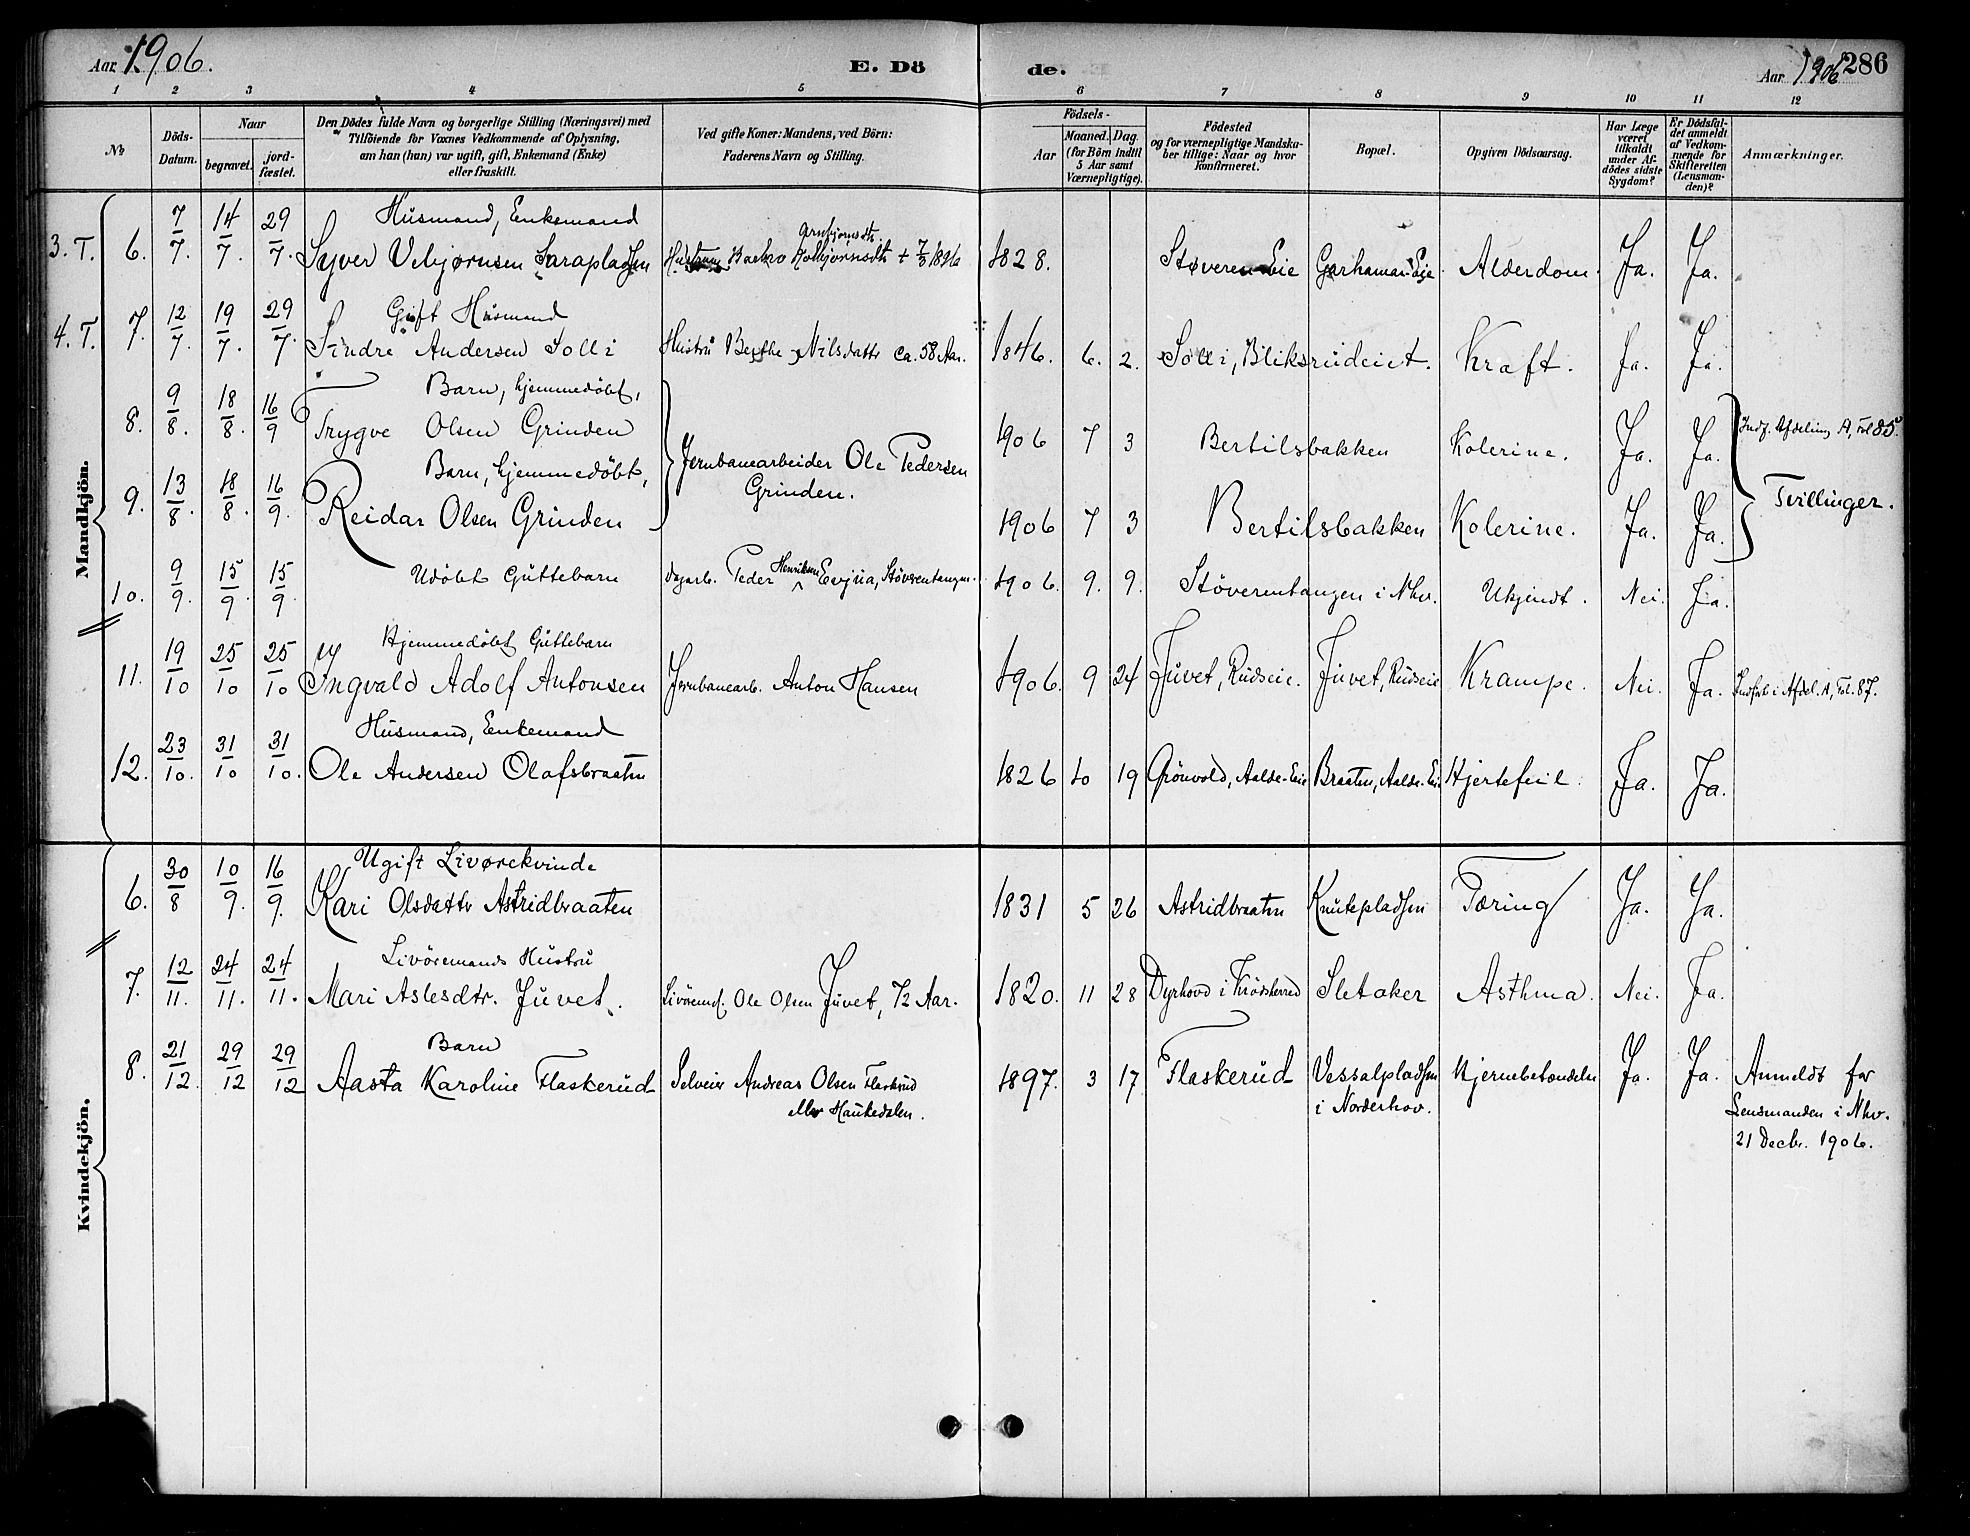 Aar 1906.
E. Döde.
Aar 1906
286
1 2 3 4 5 6 7 8 9 10 11 12
No
Döds-Datum.
Naar
begravet.
jordfæstet.
Den Dödes fulde Navn og borgerlige Stilling (Næringsvei) med
Tilföiende for Voxnes Vedkommende af Oplysning,
om han (hun) var ugift, gift, Enkemand (Enke)
eller fraskilt.
Ved gifte Koner: Mandens, ved Börn:
Faderens Navn og Stilling.
Födsels-
Aar
Maaned. Dag.
(for Börn indtil
5 Aar samt
Værnepligtige).
Födested
og for værnepligtige Mandskaber tillige: Naar og hvor
konfirmeret.
Bopæl.
Opgiven Dödsaarsag.
Har Læge
været
tilkaldt
under Afdödes sidste
Sygdom?
Er Dödsfaldet anmeldt
af Vedkommende for
Skifteretten
(Lensmanden)?
Anmærkninger.
Mandkjön.
3. T. 6. 7/7. 14/7. 29/7. Husmand, Enkemand
Syver Vebjørnsen Sarapladsen Hustru Baebro + 7/3 1896 1828. Støveren Eie Garhamar Eje. Alderdom. Ja. Ja.
4. T. 7. 12/7. 19/7. 29/7. Gift Husmand
Sindre Andersen Solli Hustru Berthe Nilsdatter ca. 58 Aar. 1846. 6. 2. Solli, Bliksrudeiet. Kraft. Ja. Ja.
8. 9/8. 18/8. 16/9 Barn, hjemmedöbt,
Trygve Olsen Grinden Jernbanearbeider Ole Pedersen
Grinden. 1906 7 3 Bertilsbakken Kolerine. Ja. Ja. Indf. Afdeling A, Fol 85.
9. 13/8. 18/8. 16/9. Barn, hjemmedöbt,
Reidar Olsen Grinden 1906 7 3 Bertilsbakken Kolerine. Ja. Ja. Tvillinger.
10. 9/9. 15/9. 15/9. Udöbt Guttebarn dagarb. Peder Henriksen Evjua, Støverentangen. 1906. 9. 9. Stöverentangen i Nhv. Ukjendt. Nei. Ja.
11. 19/10 25/10 25/10 Hjemmedöbt Guttebarn
Ingvald Adolf Antonsen Jernbanearb. Anton Hansen 1906. 9 24 Juvet, Rudseie. Juvet, Rudseie Krampe. Nei. Ja. Indført i Afdel. A, Fol. 87.
12. 23/10. 31/10 31/10. Husmand, Enkemand
Ole Andersen Olafsbraaten 1826 10 19 Grönvold, Aalde-Eie Braaten, Aalde-Eie Hjertefeil. Ja. Ja.
Kvindekjön.
6. 30/8 10/9. 16/9. Ugift Livørekvinde
Kari Olsdatter Astridbraaten 1831 5 26 Astridbraaten Knutepladsen Tæring Ja. Ja.
7. 12/11. 24/11. 24/11. Livöremands Hustru
Mari Aslesdtr. Juvet. Livöremd. Ole Olsen Juvet, 72 Aar. 1820. 11 28 Dyrhovd i Krödsherred Sletaker Asthma. Nei. Ja.
8. 21/12. 29/12 29/12 Barn
Aasta Karoline Flaskerud Selveier Andreas Olsen Flaskerud
eller Haukedalen. 1897. 3 17 Flaskerud Vessalpladsen
i Norderhov. Hjernebetændelse Ja. Ja. Anmeldt for
Lensmanden i Nhv.
21 Decbr. 1906.